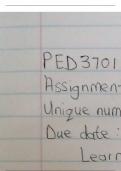 PED3701
Assignmen
Unique num
Due date :
Learn